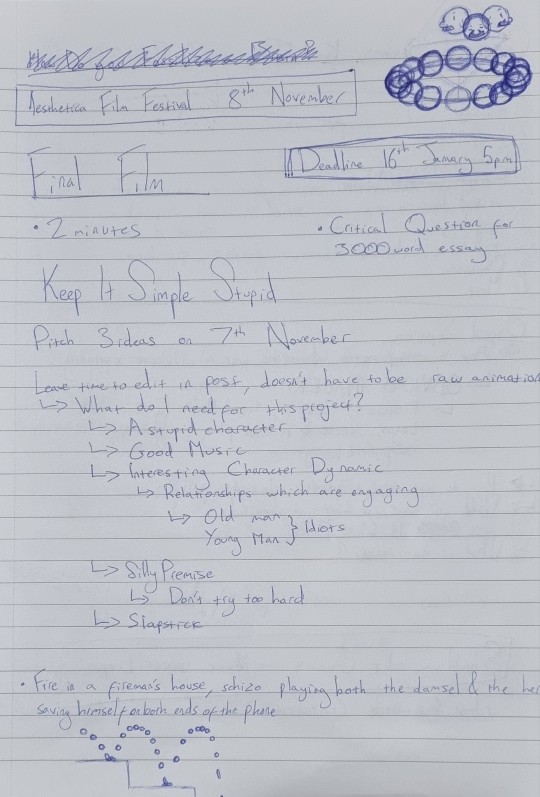 Aesthetica Film Festival 8th November
Final Film
Deadline 16th January 5pm
• 2 minutes
• Critical Question for
3000 word essay
Keep It Simple Stupid
Pitch 3 ideas on 7th November
Leave time to edit in post, doesn't have to be raw animation
↳ What do I need for this project?
↳ A stupid character
↳ Good Music
↳ Interesting Character Dynamic
↳ Relationships which are engaging
↳ Old man } Idiots
Young Man
↳ Silly Premise
↳ Don't try too hard
↳ Slapstick
• Fire in a fireman's house, schizo playing both the damsel & the he
saving himself on both ends of the phone